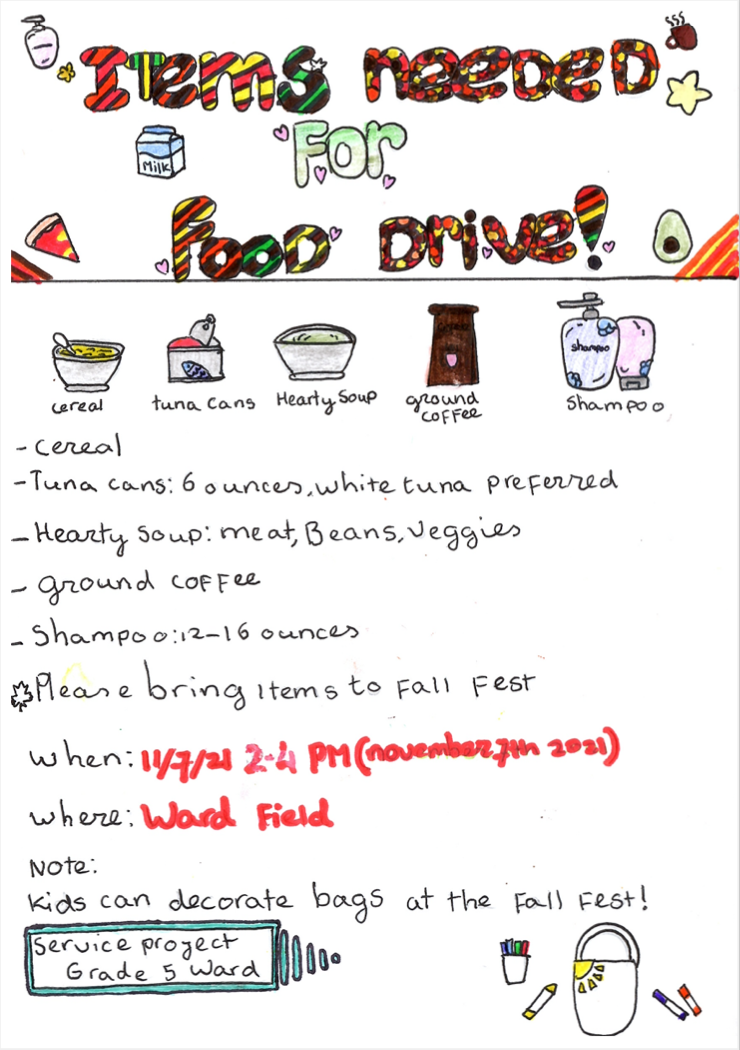 Items needed
Milk
For
Food Drive!
shampoo
cereal
tuna cans
Hearty Soup
ground
coffee
Shampoo
- cereal
- Tuna cans: 6 ounces, white tuna preferred
- Hearty Soup: meat, Beans, Veggies
- ground coffee
- Shampoo: 12-16 ounces
Please bring Items to Fall Fest
when: 11/7/21 2-4 PM (november 7th 2021)
where: Ward Field
Note:
Kids can decorate bags at the Fall Fest!
Service proyect
Grade 5 Ward